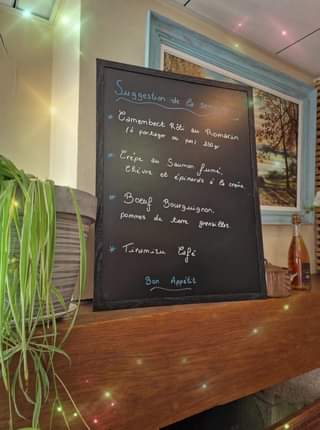 Suggestion de la semaine
* Camembert Rôti au Romarin
(à partager ou pas) 250gr
* Crêpe au Saumon fumé,
chèvre et épinards à la crème
* Boeuf Bourguignon,
pommes de terre grenailles
* Tiramisu Café
Bon Appétit